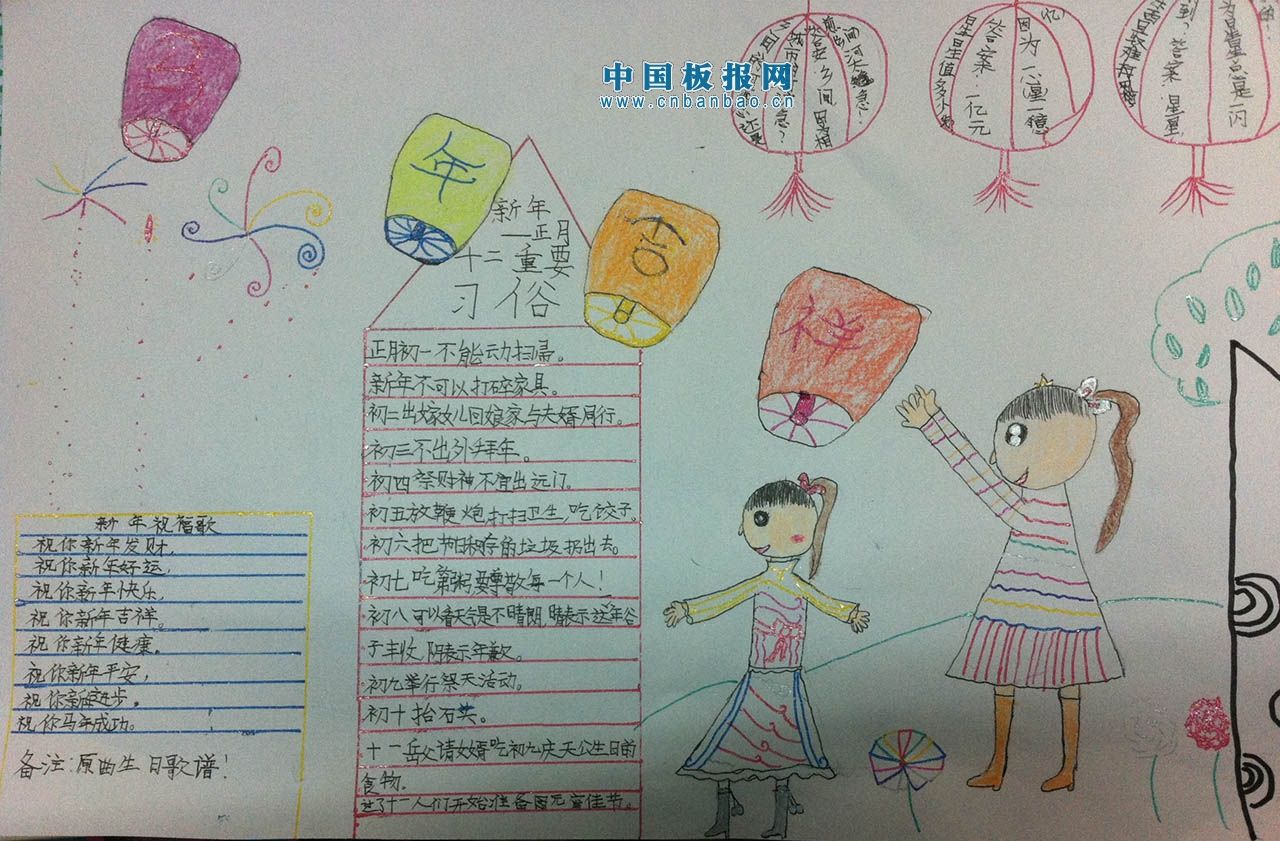 马
年
吉
祥
中国板报网
www.cnbanbao.cn
新年
—正月
十二重要
习俗
正月初一不能动扫帚。
新年不可以打碎家具。
初二出嫁女儿回娘家与夫婿同行。
初三不出外拜年。
初四祭财神不宜出远门。
初五放鞭炮,打扫卫生,吃饺子。
初六把节日积存的垃圾扔出去。
初七吃粥要尊敬每一个人!
初八可以看天气是不晴朗,晴表示这年谷
子丰收,阴表示年歉。
初九举行祭天活动。
初十抬石头。
十一岳父请女婿吃初九庆天公生日的
食物。
过了十一人们开始准备闹元宵佳节。
新年祝福歌
祝你新年发财,
祝你新年好运,
祝你新年快乐,
祝你新年吉祥。
祝你新年健康。
祝你新年平安,
祝你新年进步。
祝你马年成功。
备注:原曲生日歌谱!
因为一心湩一億
答案:一亿元
星星值多少
为星星总是一闪
到?答案:星星